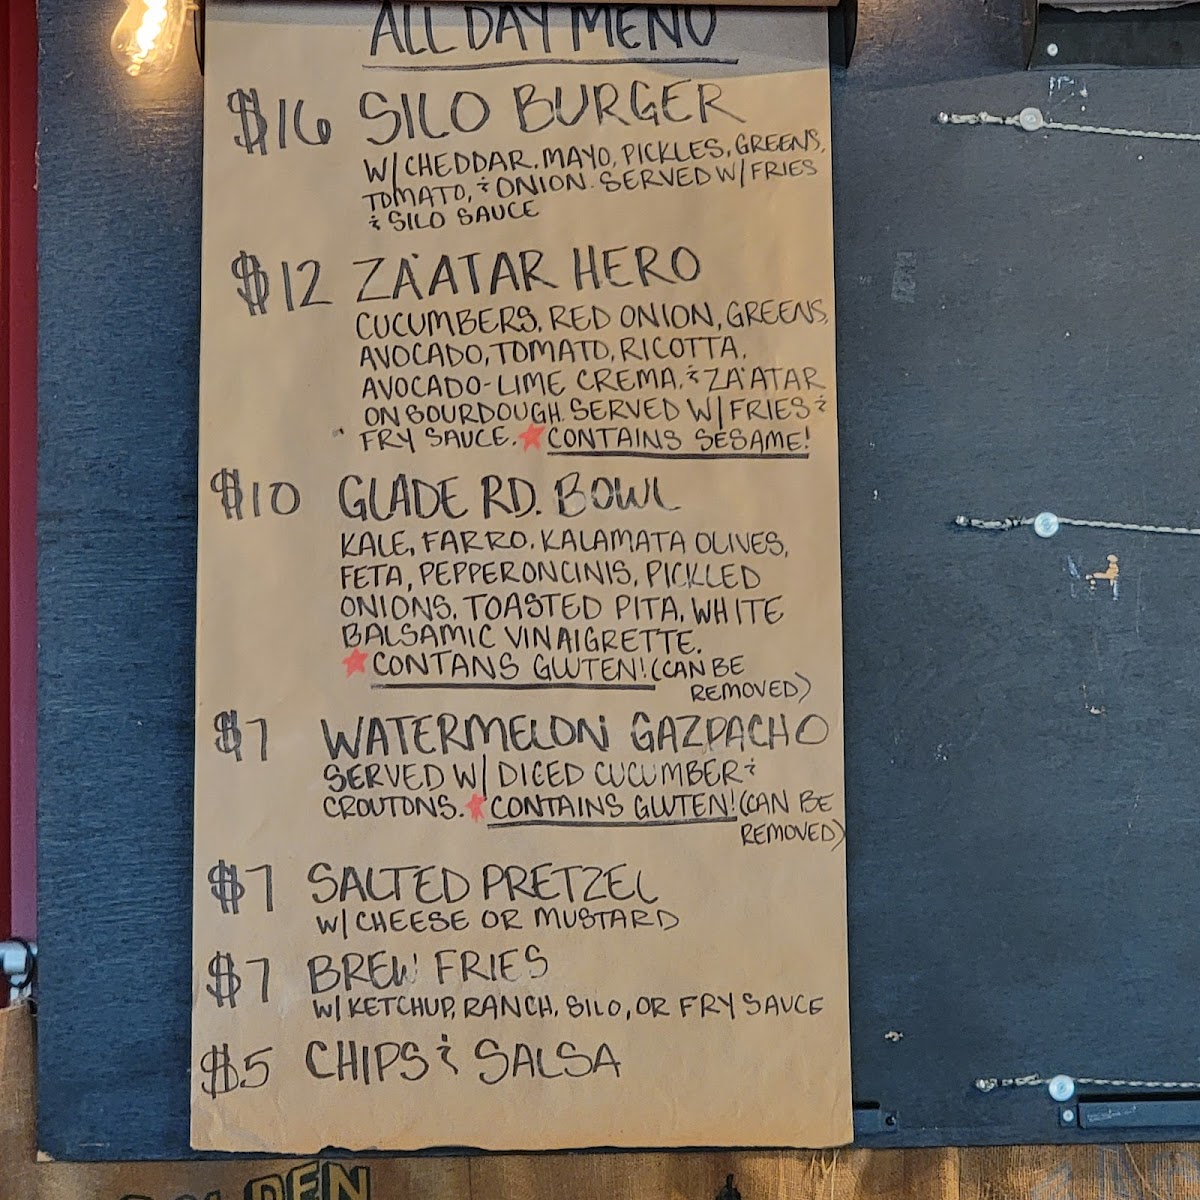 ALL DAY MENU
$16 SILO BURGER
W/ CHEDDAR, MAYO, PICKLES, GREENS,
TOMATO, & ONION. SERVED W/ FRIES
& SILO SAUCE
$12 ZA'ATAR HERO
CUCUMBERS, RED ONION, GREENS,
AVOCADO, TOMATO, RICOTTA,
AVOCADO-LIME CREMA, & ZA'ATAR
ON SOURDOUGH. SERVED W/ FRIES &
FRY SAUCE. ★CONTAINS SESAME!
$10 GLADE RD. BOWL
KALE, FARRO, KALAMATA OLIVES,
FETA, PEPPERONCINIS, PICKLED
ONIONS, TOASTED PITA, WHITE
BALSAMIC VINAIGRETTE.
★CONTANS GLUTEN! (CAN BE
REMOVED)
$7 WATERMELON GAZPACHO
SERVED W/ DICED CUCUMBER &
CROUTONS. ★CONTAINS GLUTEN! (CAN BE
REMOVED)
$7 SALTED PRETZEL
W/ CHEESE OR MUSTARD
$7 BREW FRIES
W/ KETCHUP, RANCH, SILO, OR FRY SAUCE
$5 CHIPS & SALSA